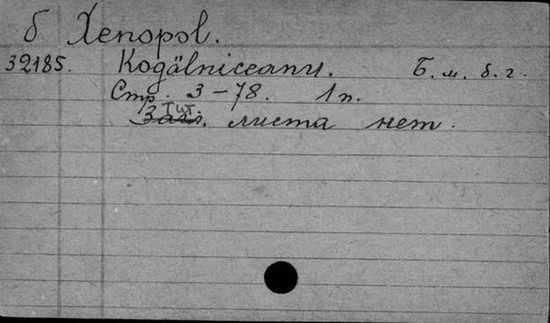 б Xenopol.
32185. Kogălniceanu. Б. м. б. г.
Стр. 3-78. 1 п.
Тит.
Загл. листа нет.